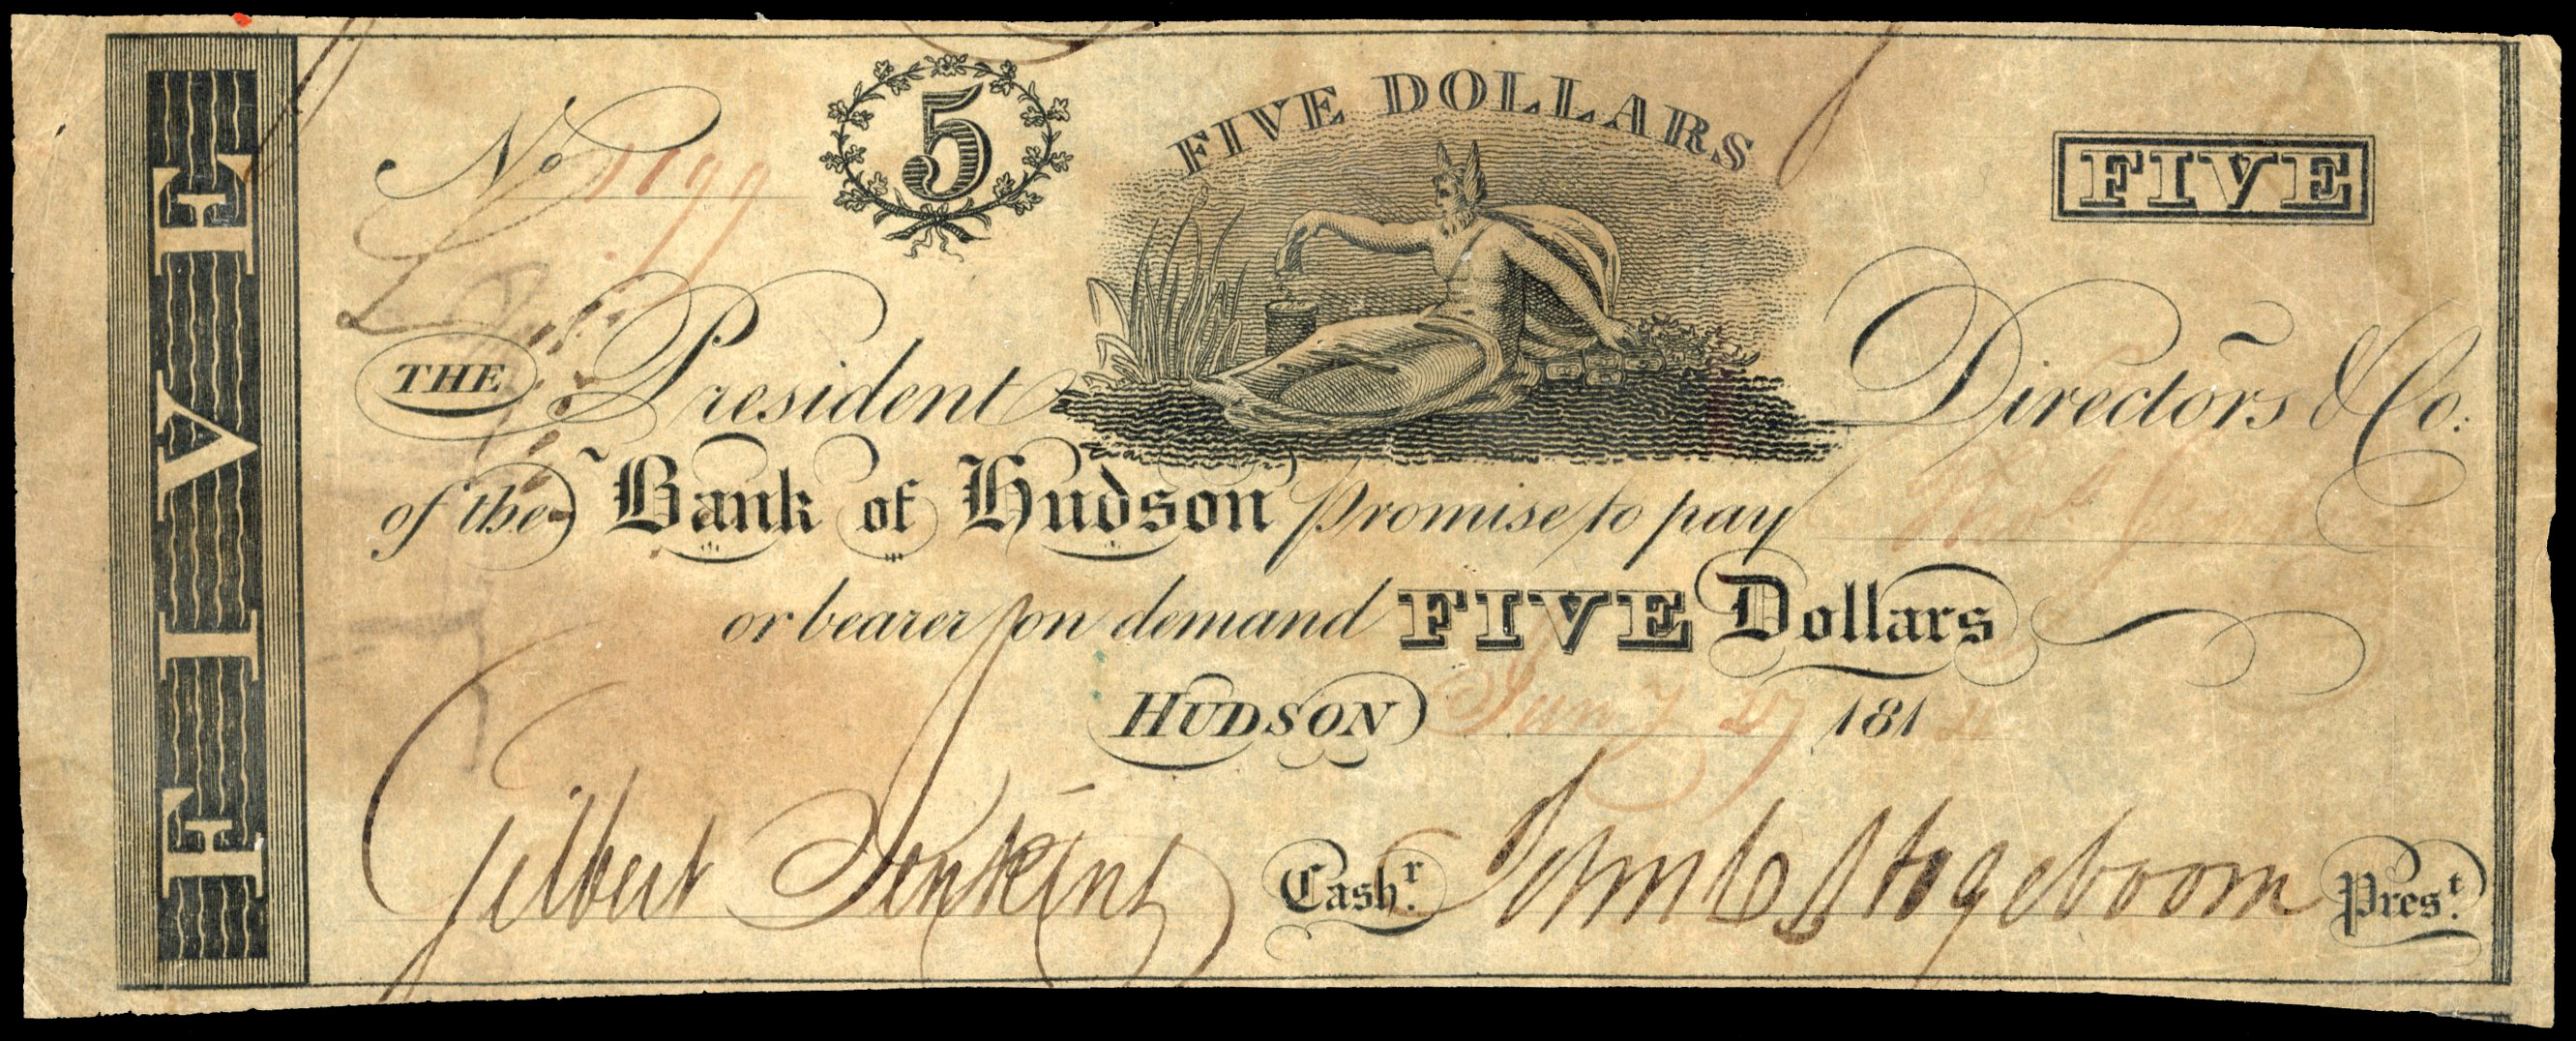 FIVE
No 1699
5
FIVE DOLLARS
FIVE
THE President Directors & Co.
of the Bank of Hudson promise to pay
or bearer on demand FIVE Dollars
HUDSON 27 181
Gilbert Jenkins Cashr. John C Hogeboom Prest.